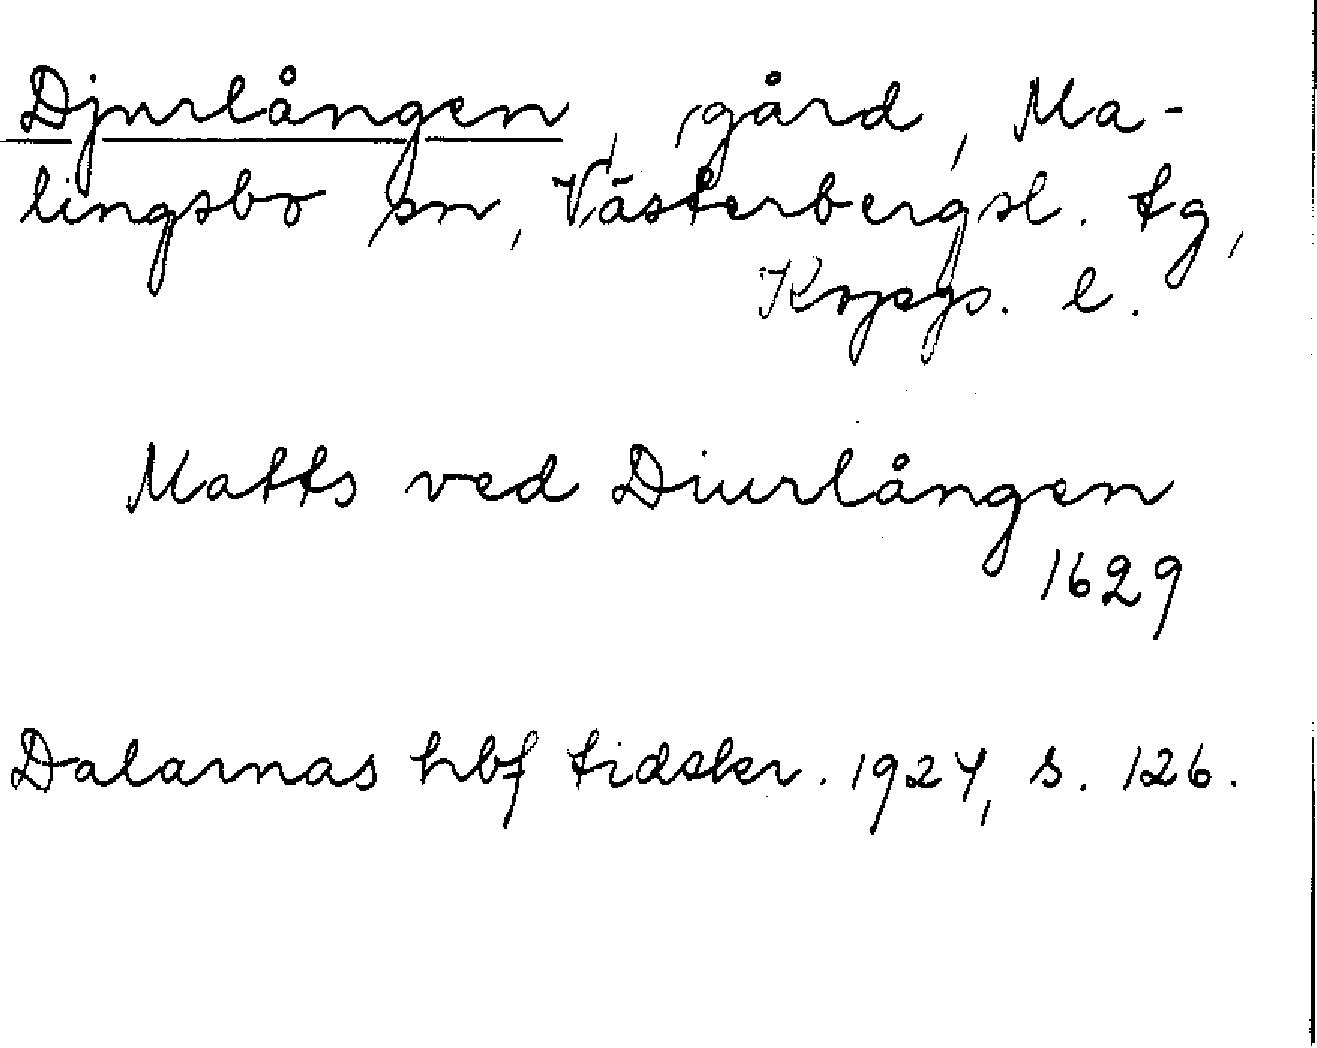 Djurlången, gård, Ma-
lingsbo sn, Västerbergsl. tg,
Kopgs. l.
Matts ved Diurlången
1629
Dalarnas hbf tidskr. 1924, s. 126.